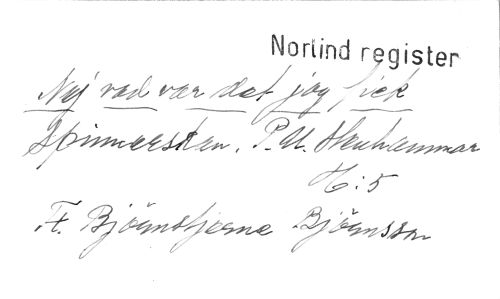 Norlind register
Nej vad var det jag fick
Spinnerskan. P.U. Stenhammar
H:5
F. Björnstjerne Björnsson